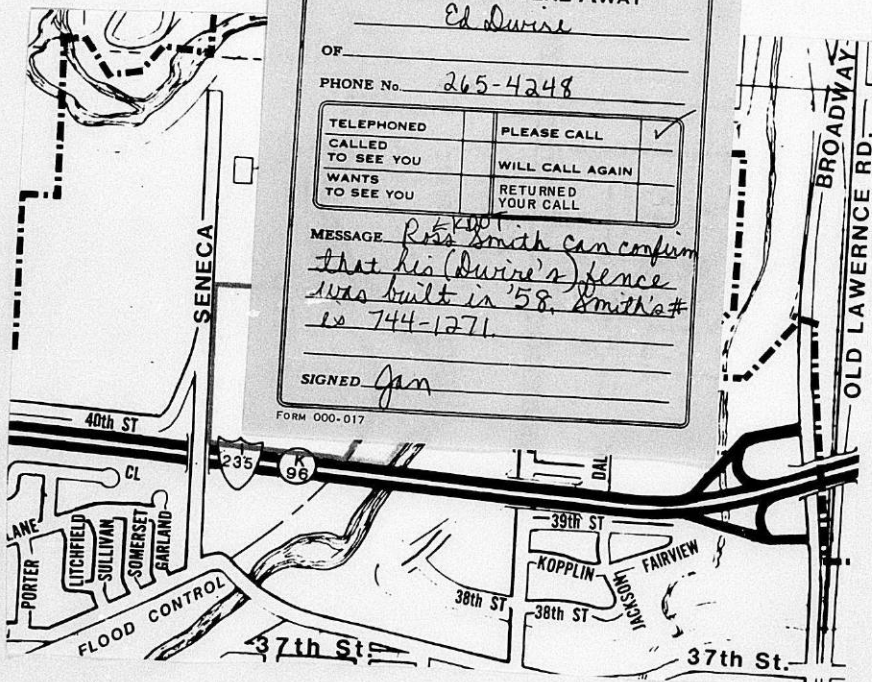 Ed Dwire
OF
PHONE No. 265-4248
TELEPHONED PLEASE CALL ✓
CALLED
TO SEE YOU WILL CALL AGAIN
WANTS
TO SEE YOU RETURNED
YOUR CALL
KDOT
MESSAGE Ross Smith can confirm
that his (Dwire's) fence
was built in '58. Smith's #
is 744-1271.
SIGNED Jan
FORM 000-017
SENECA
BROADWAY
OLD LAWERNCE RD.
40th ST
235
K
96
CL
LANE
PORTER
LITCHFIELD
SULLIVAN
SOMERSET
GARLAND
FLOOD CONTROL
DAL
39th ST
KOPPLIN
FAIRVIEW
JACKSON
38th ST
38th ST
37th St.
37th St.